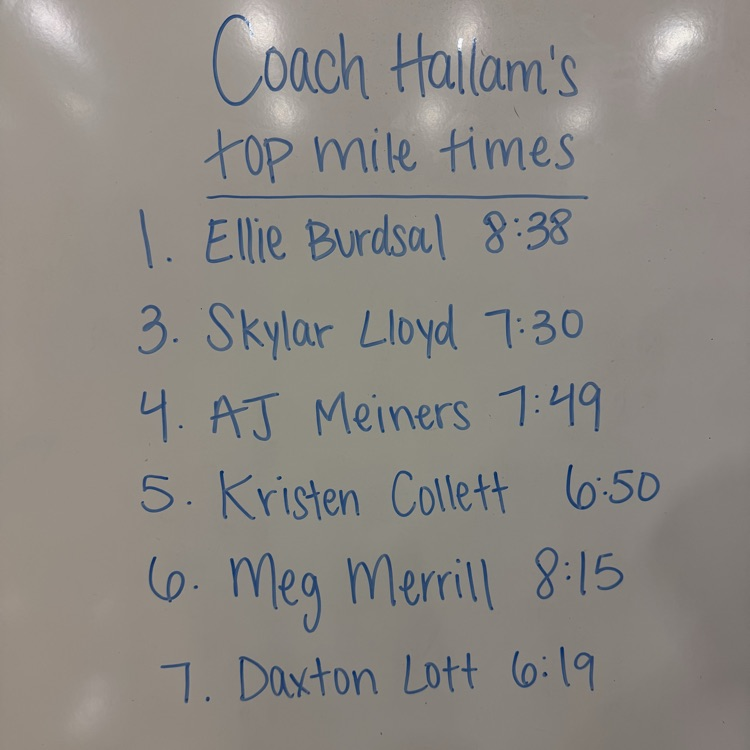 Coach Hallam's
top mile times
1. Ellie Burdsal 8:38
3. Skylar Lloyd 7:30
4. AJ Meiners 7:49
5. Kristen Collett 6:50
6. Meg Merrill 8:15
7. Daxton Lott 6:19